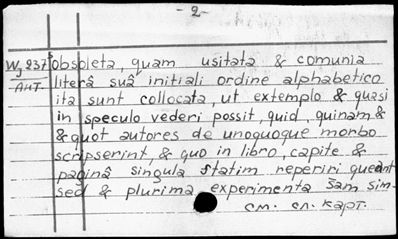 -2-
Wj 237⁵ obsoleta, quam usitata & comunia
Ант. literâ suâ initiali ordine alphabetico
ita sunt collocata, ut extemplo & quasi
in speculo vederi possit, quid, quinam &
& quot autores de unoquoque morbo
scripserint, & quo in libro, capite &
paginâ singula statim reperiri queant
sed & plurima experimenta šam sim-
см. сл. карт.